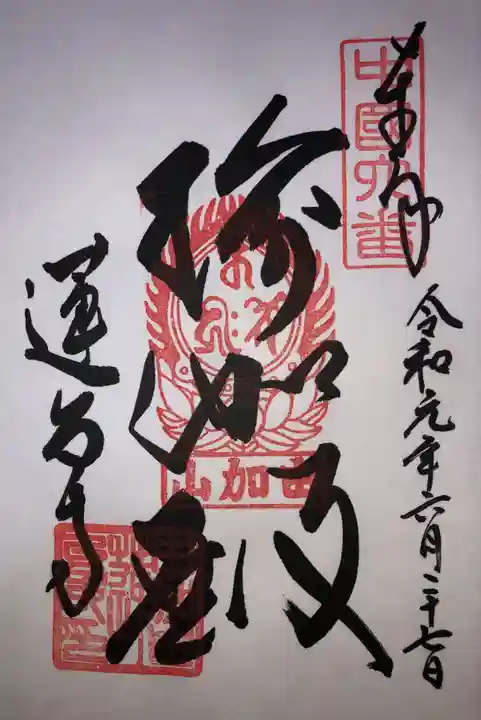 中國六番
奉拝
令和元年六月二十七日
瑜伽殿
由加山
蓮台寺